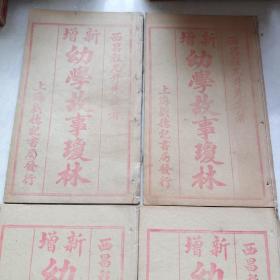 新增
西昌程允升先生著
幼學故事瓊林
上海劉德記書局發行
新增
西昌程允升先生著
幼學故事瓊林
上海劉德記書局發行
新增
西昌
幼
新增
西昌
幼